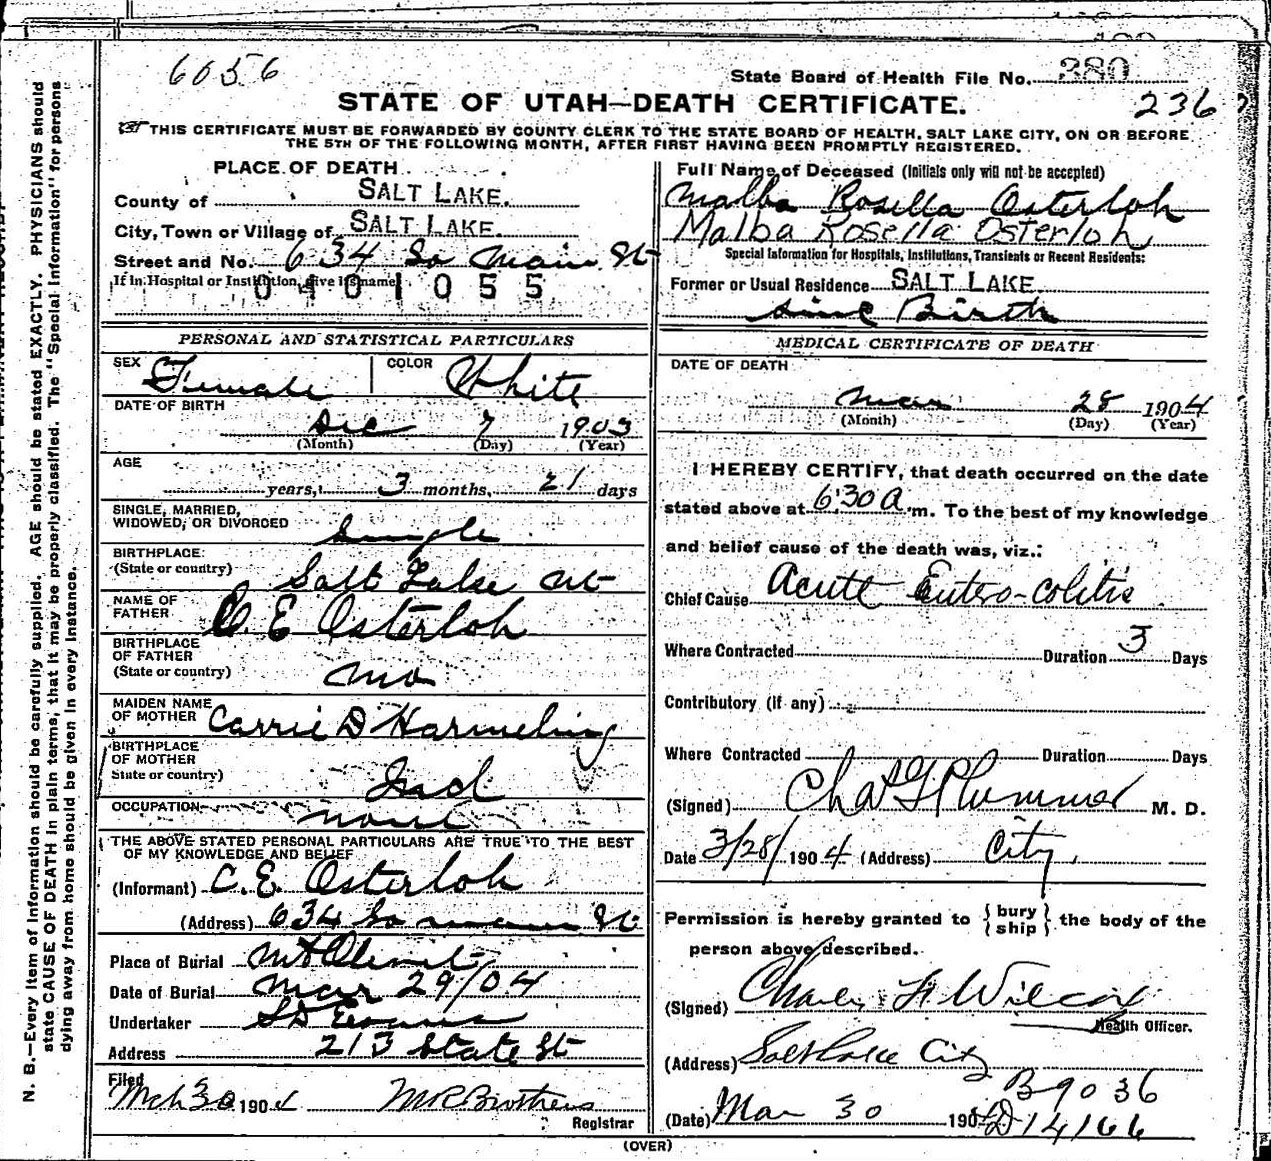 6056
State Board of Health File No. 380
236
STATE OF UTAH—DEATH CERTIFICATE.
THIS CERTIFICATE MUST BE FORWARDED BY COUNTY CLERK TO THE STATE BOARD OF HEALTH, SALT LAKE CITY, ON OR BEFORE
THE 5TH OF THE FOLLOWING MONTH, AFTER FIRST HAVING BEEN PROMPTLY REGISTERED.
PLACE OF DEATH
County of SALT LAKE.
City, Town or Village of SALT LAKE.
Street and No. 634 So Main St
If in Hospital or Institution, give its name
0401055
Full Name of Deceased (Initials only will not be accepted)
Malba Rosella Osterloh
Malba Rosella Osterloh
Special Information for Hospitals, Institutions, Transients or Recent Residents:
Former or Usual Residence SALT LAKE.
since Birth
PERSONAL AND STATISTICAL PARTICULARS
SEX Female COLOR White
DATE OF BIRTH
Dec 7 1903
(Month) (Day) (Year)
AGE
years, 3 months, 21 days
SINGLE, MARRIED,
WIDOWED, OR DIVORCED Single
BIRTHPLACE
(State or country) Salt Lake Ut
NAME OF
FATHER C. E Osterloh
BIRTHPLACE
OF FATHER
(State or country) Mo
MAIDEN NAME
OF MOTHER Carrie D Harmeling
BIRTHPLACE
OF MOTHER
State or country) Ind
OCCUPATION none
THE ABOVE STATED PERSONAL PARTICULARS ARE TRUE TO THE BEST
OF MY KNOWLEDGE AND BELIEF
(Informant) C. E Osterloh
(Address) 634 So main St
Place of Burial Mt Olivet
Date of Burial Mar 29/04
Undertaker S D Evans
Address 213 State St
Filed
Mch 30 1904 M R Brothers
Registrar
MEDICAL CERTIFICATE OF DEATH
DATE OF DEATH
Mar 28 1904
(Month) (Day) (Year)
I HEREBY CERTIFY, that death occurred on the date
stated above at 6:30 A.m. To the best of my knowledge
and belief cause of the death was, viz.:
Chief Cause Acute Entero-colitis
Where Contracted Duration 3 Days
Contributory (if any)
Where Contracted Duration Days
(Signed) Chas G Plummer M. D.
Date 3/28/1904 (Address) City.
Permission is hereby granted to { bury ship } the body of the
person above described.
(Signed) Charles F Wilcox
Health Officer.
(Address) Salt Lake City
B 9036
(Date) Mar 30 190
D 14166
(OVER)
N. B.—Every item of information should be carefully supplied. AGE should be stated EXACTLY. PHYSICIANS should
state CAUSE OF DEATH in plain terms, that it may be properly classified. The "Special Information" for persons
dying away from home should be given in every instance.